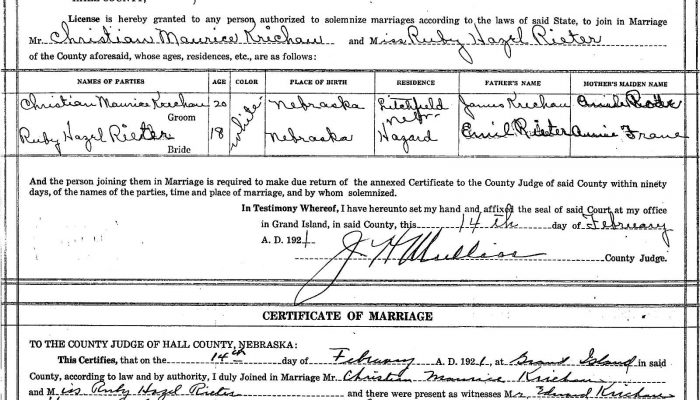 License is hereby granted to any person authorized to solemnize marriages according to the laws of said State, to join in Marriage
Mr. Christian Maurice Krichau and Miss Ruby Hazel Rieter
of the County aforesaid, whose ages, residences, etc., are as follows:
NAMES OF PARTIES AGE COLOR PLACE OF BIRTH RESIDENCE FATHER'S NAME MOTHER'S MAIDEN NAME
Christian Maurice Krichau Groom 20 white Nebraska Litchfield Nebr James Krichau
Ruby Hazel Rieter Bride 18 Nebraska Hazard Emil Rieter Annie
And the person joining them in Marriage is required to make due return of the annexed Certificate to the County Judge of said County within ninety
days, of the names of the parties, time and place of marriage, and by whom solemnized.
In Testimony Whereof, I have hereunto set my hand and affixed the seal of said Court, at my office
in Grand Island, in said County, this 14th day of February
A. D. 1921 J H Mullin County Judge.
CERTIFICATE OF MARRIAGE
TO THE COUNTY JUDGE OF HALL COUNTY, NEBRASKA:
This Certifies, that on the 14th day of February A. D. 1921, at Grand Island in said
County, according to law and by authority, I duly Joined in Marriage Mr. Christian Maurice Krichau
and Miss Ruby Hazel Rieter and there were present as witnesses Mr. Edward Krichau